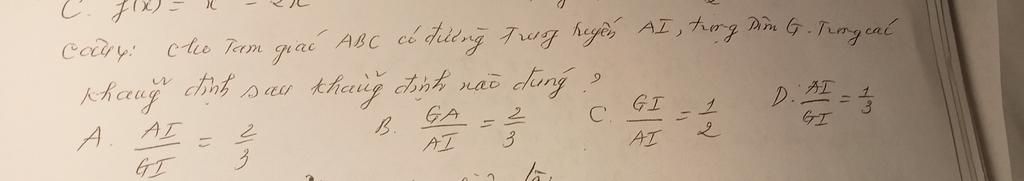 C. f(x) = x - 2x
Câu 4: Cho Tam giác ABC có đường Trung tuyến AI, trọng tâm G. Trong các
khẳng định sau khẳng định nào đúng?
A. AI/GI = 2/3 B. GA/AI = 2/3 C. GI/AI = 1/2 D. AI/GI = 1/3